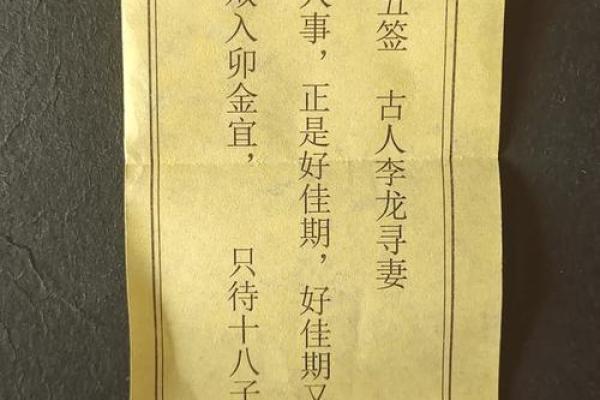 签 古人李龙寻妻
事，正是好佳期，好佳期又
入卯金宜， 只待十八子